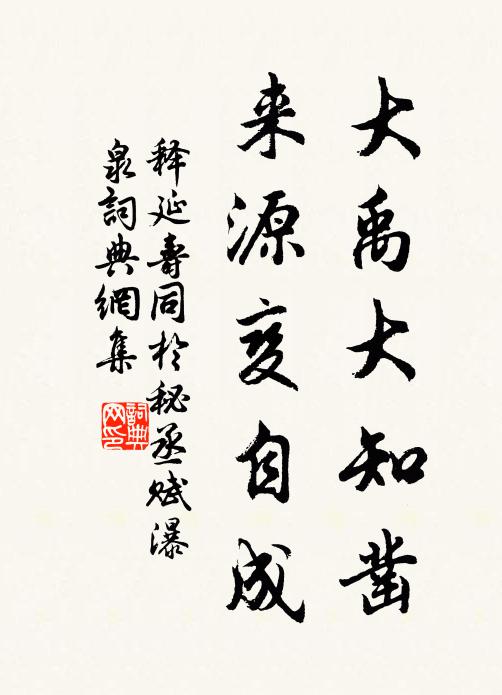 大禹大知凿
来源变自成
释延寿同於秘丞赋瀑
泉词典網集
詞典网印